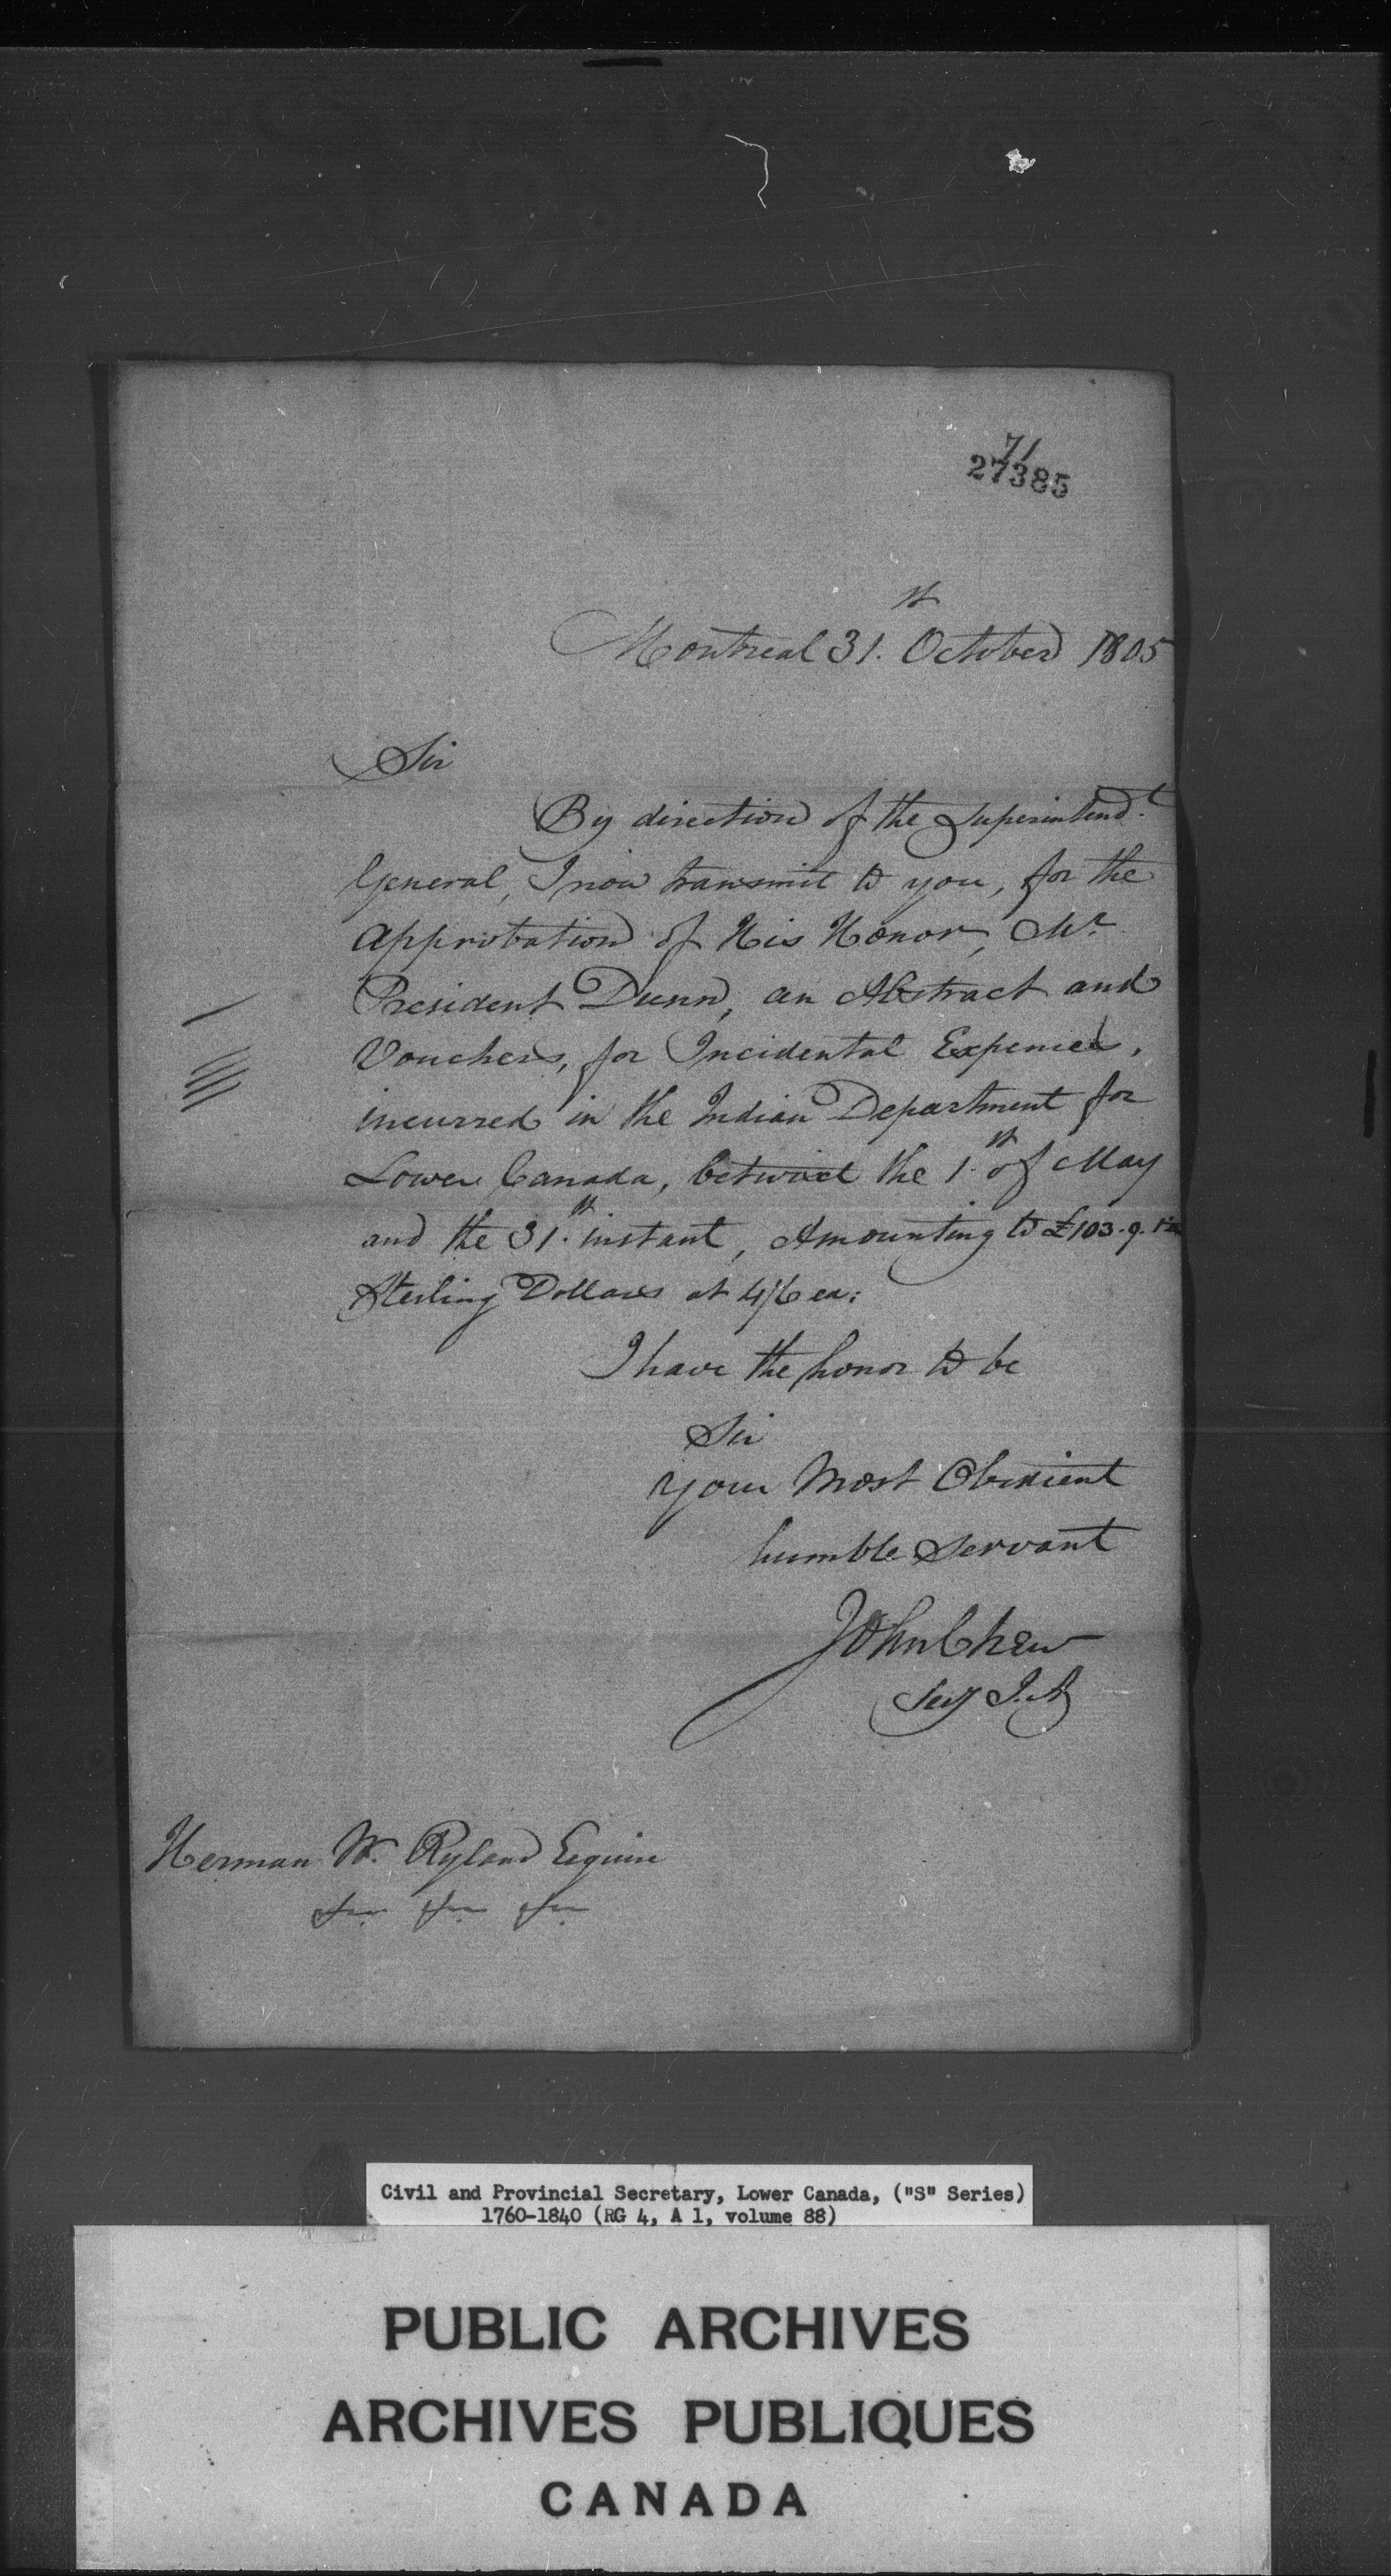 71
27385
Montreal 31.st October 1805
Sir
By direction of the Superintend.t
General, I now transmit to you, for the
Approbation of His Honor, Mr.
President Dunn, an Abstract and
Vouchers, for Incidental Expences,
incurred in the Indian Department for
Lower Canada, betwixt the 1.st of May
and the 31.st instant, Amounting to £103.9.
Sterling Dollars at 4/6 ea:
I have the honor to be
Sir
your Most Obedient
humble Servant
John Chew
Secy I.A
Herman W. Ryland Esquire
&c. &c. &c.
Civil and Provincial Secretary, Lower Canada, ("S" Series)
1760-1840 (RG 4, A 1, volume 88)
PUBLIC ARCHIVES
ARCHIVES PUBLIQUES
CANADA